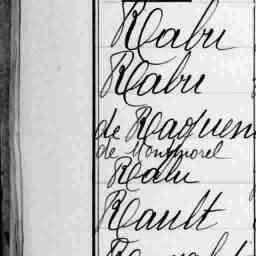 Rabu
Rabu
de Raquen
de Montmorel
Rabu
Rault